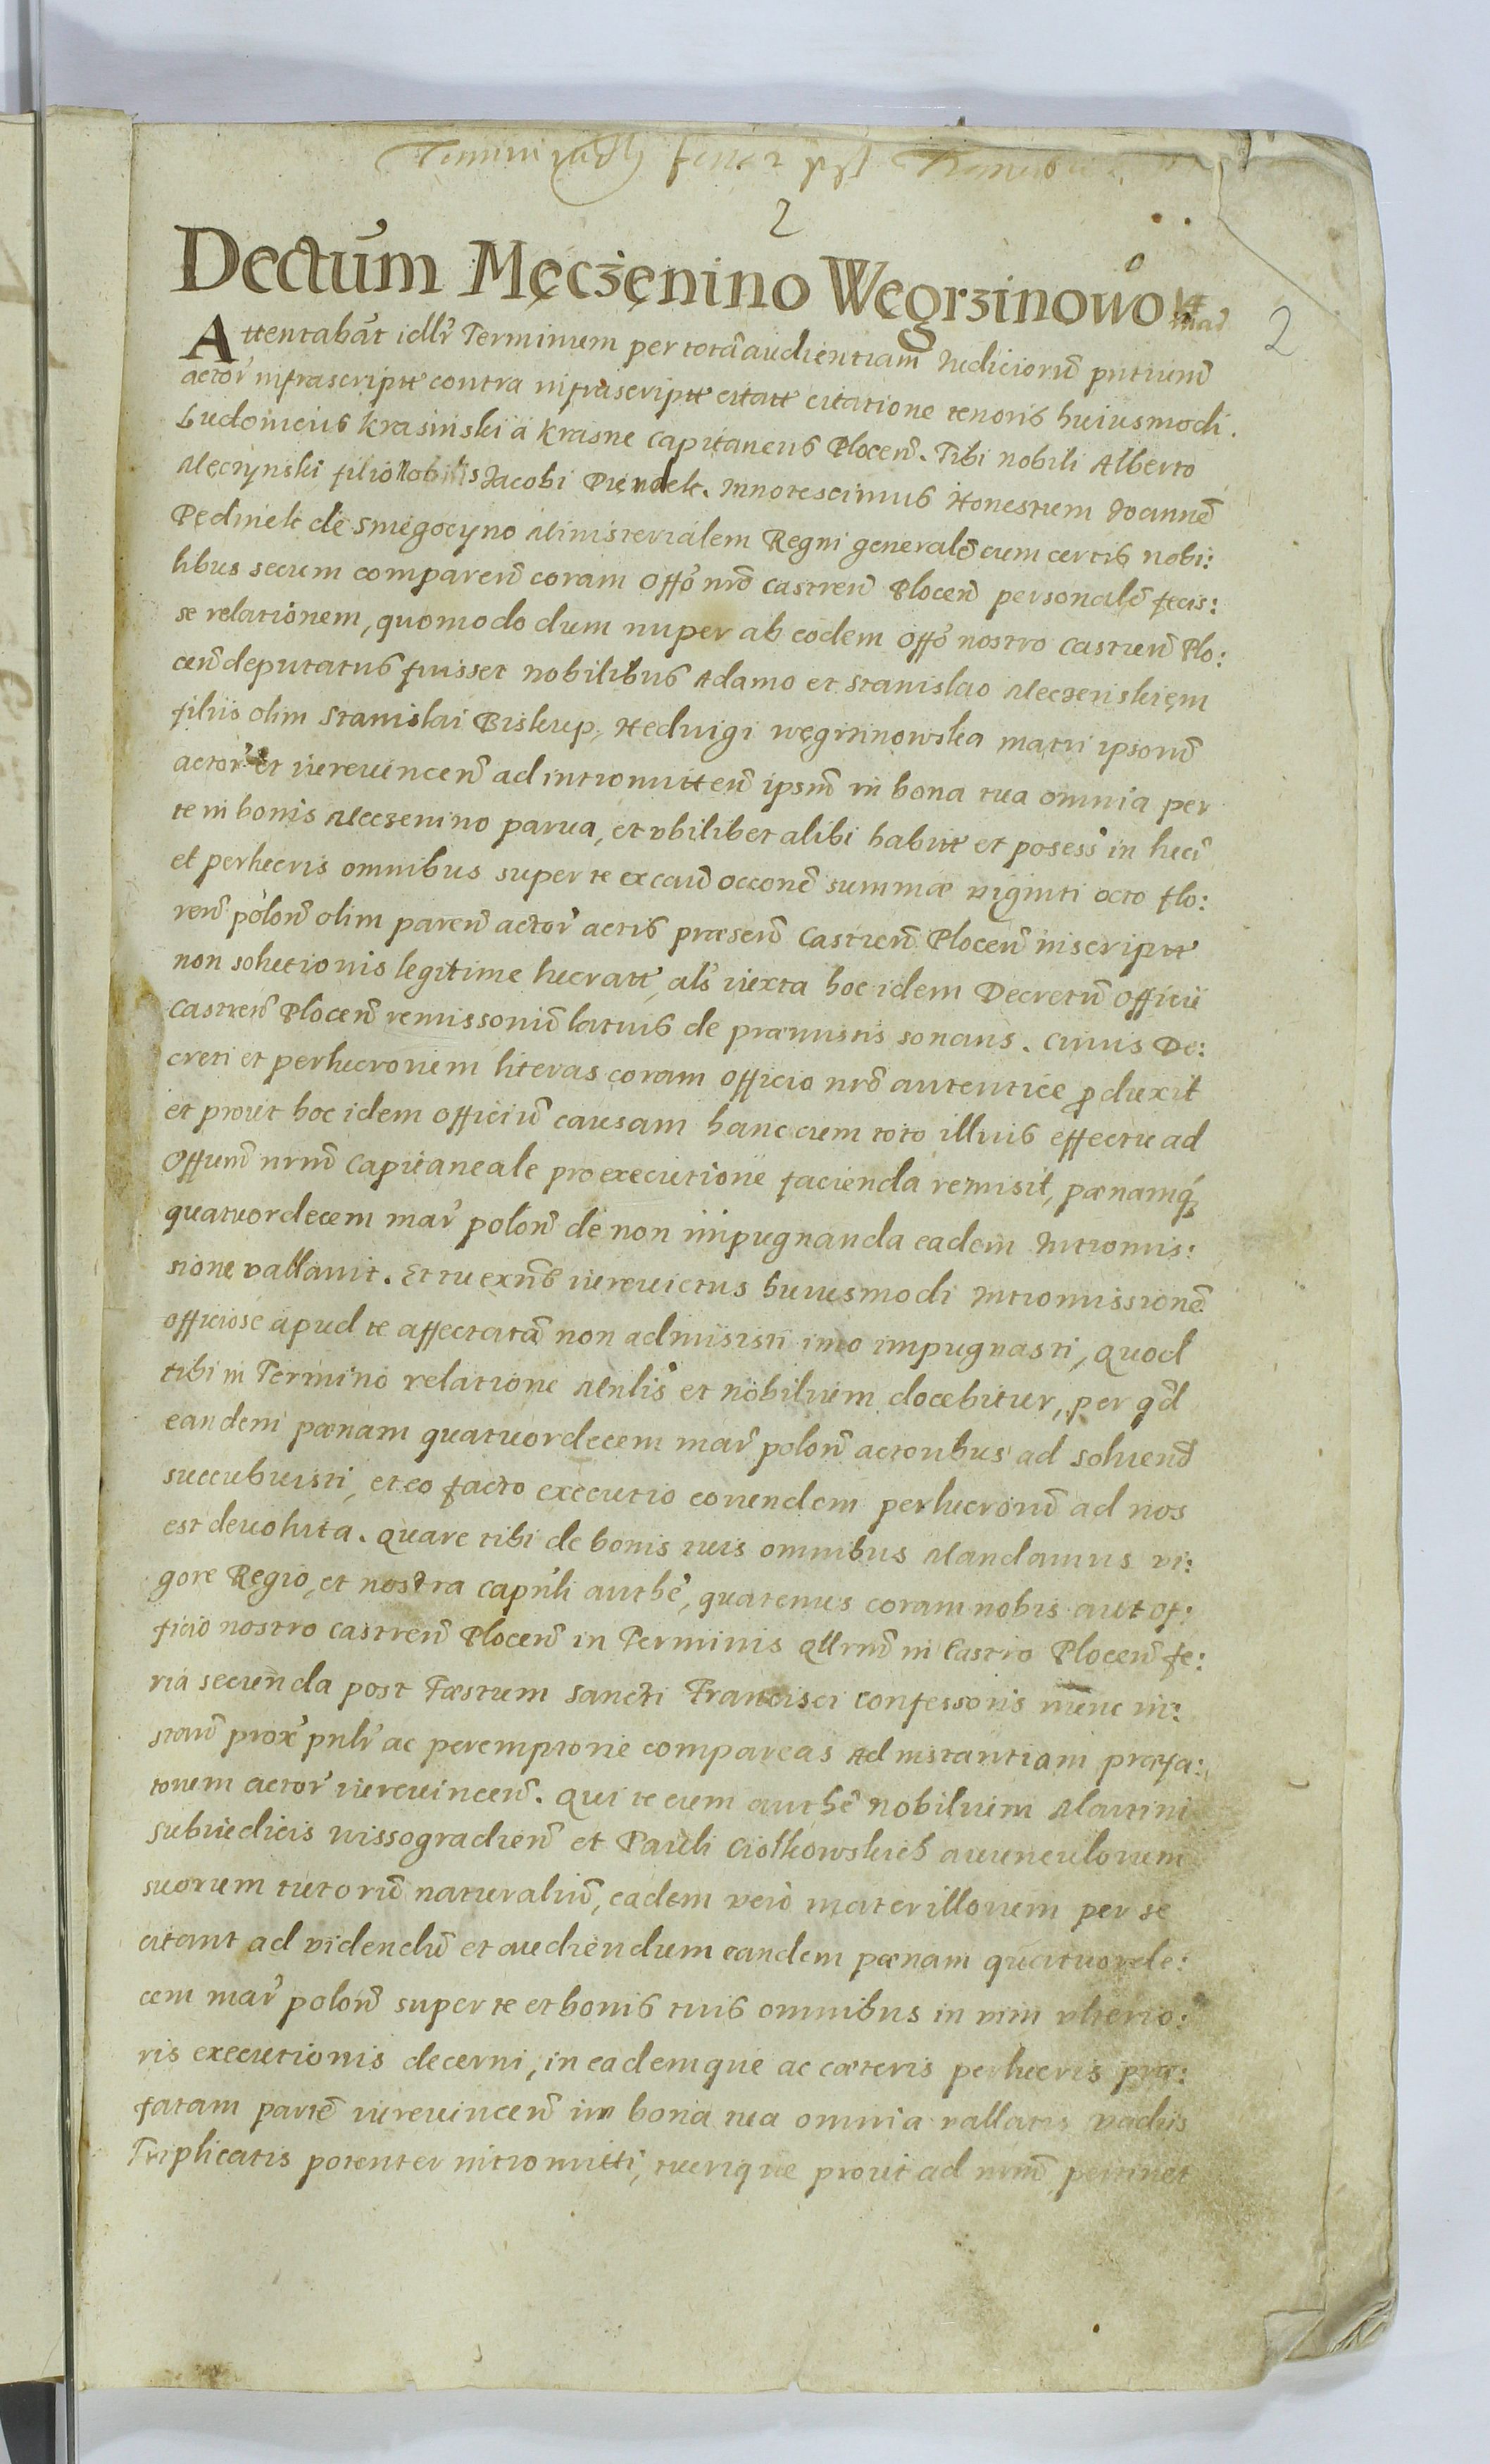 Termini
2
Dectum Męcżęnino Węgrzinowo
2
Attentabāt idlr̃ Terminum per totā audientiam Iudiciorũ pntiuũ
actor̃ infrascriptt contra infrascriptt citatt citatione tenoris huiusmodi.
Ludouicus Krasinski á Krasne Capitaneus Plocen̄. Tibi nobili Alberto
Męczynski filio Nobilis Jacobi Piendek. Innotescimus Honestum Joannē
Pędinek de Smegocyno Ministerialem Regni generalē cum certis nobi:
libus secum comparen̄ coram Offo nrō Castren̄ Plocen̄ personalē fecis:
se relationem, quomodo dum nuper ab eodem Offo nostro Castren̄ Plo:
cen̄ deputatus fuisset nobilibus Adamo et Stanislao Meczenskięm
filiis olim Stanislai Biskup, Heduigi węgrzinowska matri ipsorũ
actor̃ et iureuincen̄ ad intromitten̄ ipsm̄ in bona tua omnia per
te in bonis Meczenino parua, et vbilibet alibi habitt et posess̃ in lucr̃
et perlucris omnibus super te ex caū occonē summæ viginti octo flo:
ren̄ polon̄ olim paren̄ actor̃ actis præsen̄ Castren̄ Plocen̄ inscriptt
non solutionis legitime lucratt, als̃ iuxta hoc idem Decretū Officii
Castren̄ Plocen̄ remissoriū latius de præmissis sonans. Cuius De:
creti et perlucrorum literas coram Officio nrō autentice produxit
et prout hoc idem Officiū causam hanc cum toto illius effectu ad
Offium̄ nrum̄ Capitaneale pro executione facienda remisit, pænamq́
quatuordecem mar̃ polon̄ de non impugnanda eadem Intromis:
sione vallauit. Et tu exn̄s iureuictus huiusmodi Intromissionē
officiose apud te affectatā non admisisti imo impugnasti, quod
tibi in Termino relatione Mnlis̃ et nobilium docebitur, per qd̄
eandem pænam quatuordecem mar̃ polon̄ actoribus ad soluend̄
succubuisti, et eo facto executio eorundem perlucrorū ad nos
est deuoluta. Quare tibi de bonis tuis omnibus Mandamus vi:
gore Regio, et nostra Capnli authē, quatenus coram nobis aut of:
ficio nostro Castren̄ Plocen̄ in Terminis Qllrnũ in Castro Plocen̄ fe:
ria secunda post Fæstum Sancti Francisci Confessoris nunc in:
stan̄ prox̃ pnlr̃ ac peremptorie compareas Ad instantiam præfa:
torum actor̃ iureuincen̄. Qui te cum authē nobilium Martini
Subiudicis wissogradien̄ et Pauli Ciolkowskich auunculorum
suorum tutorū naturaliū, eadem vero mater illorum per se
citant ad videndū et audiendum eandem pænam quatuorde:
cem mar̃ polon̄ super te et bonis tuis omnibus in vim vlterio:
ris executionis decerni, in eademque ac cæteris perlucris præ:
fatam partē iureuincen̄ in bona tua omnia vallatis vadiis
Triplicatis potenter intromitti, tuerique prout ad nrm̄ pertinet